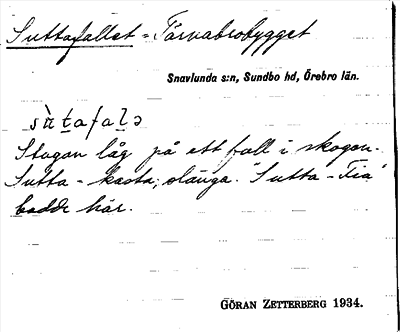 Suttafallet = Tärvabrobygget
Snavlunda s:n, Sundbo hd, Örebro län.
sù̀ṯafaḻə
Stugan låg på ett fall i skogen.
Sutta - kasta, slänga. "Sutta-Fia"
bodde här.
GÖRAN ZETTERBERG 1934.